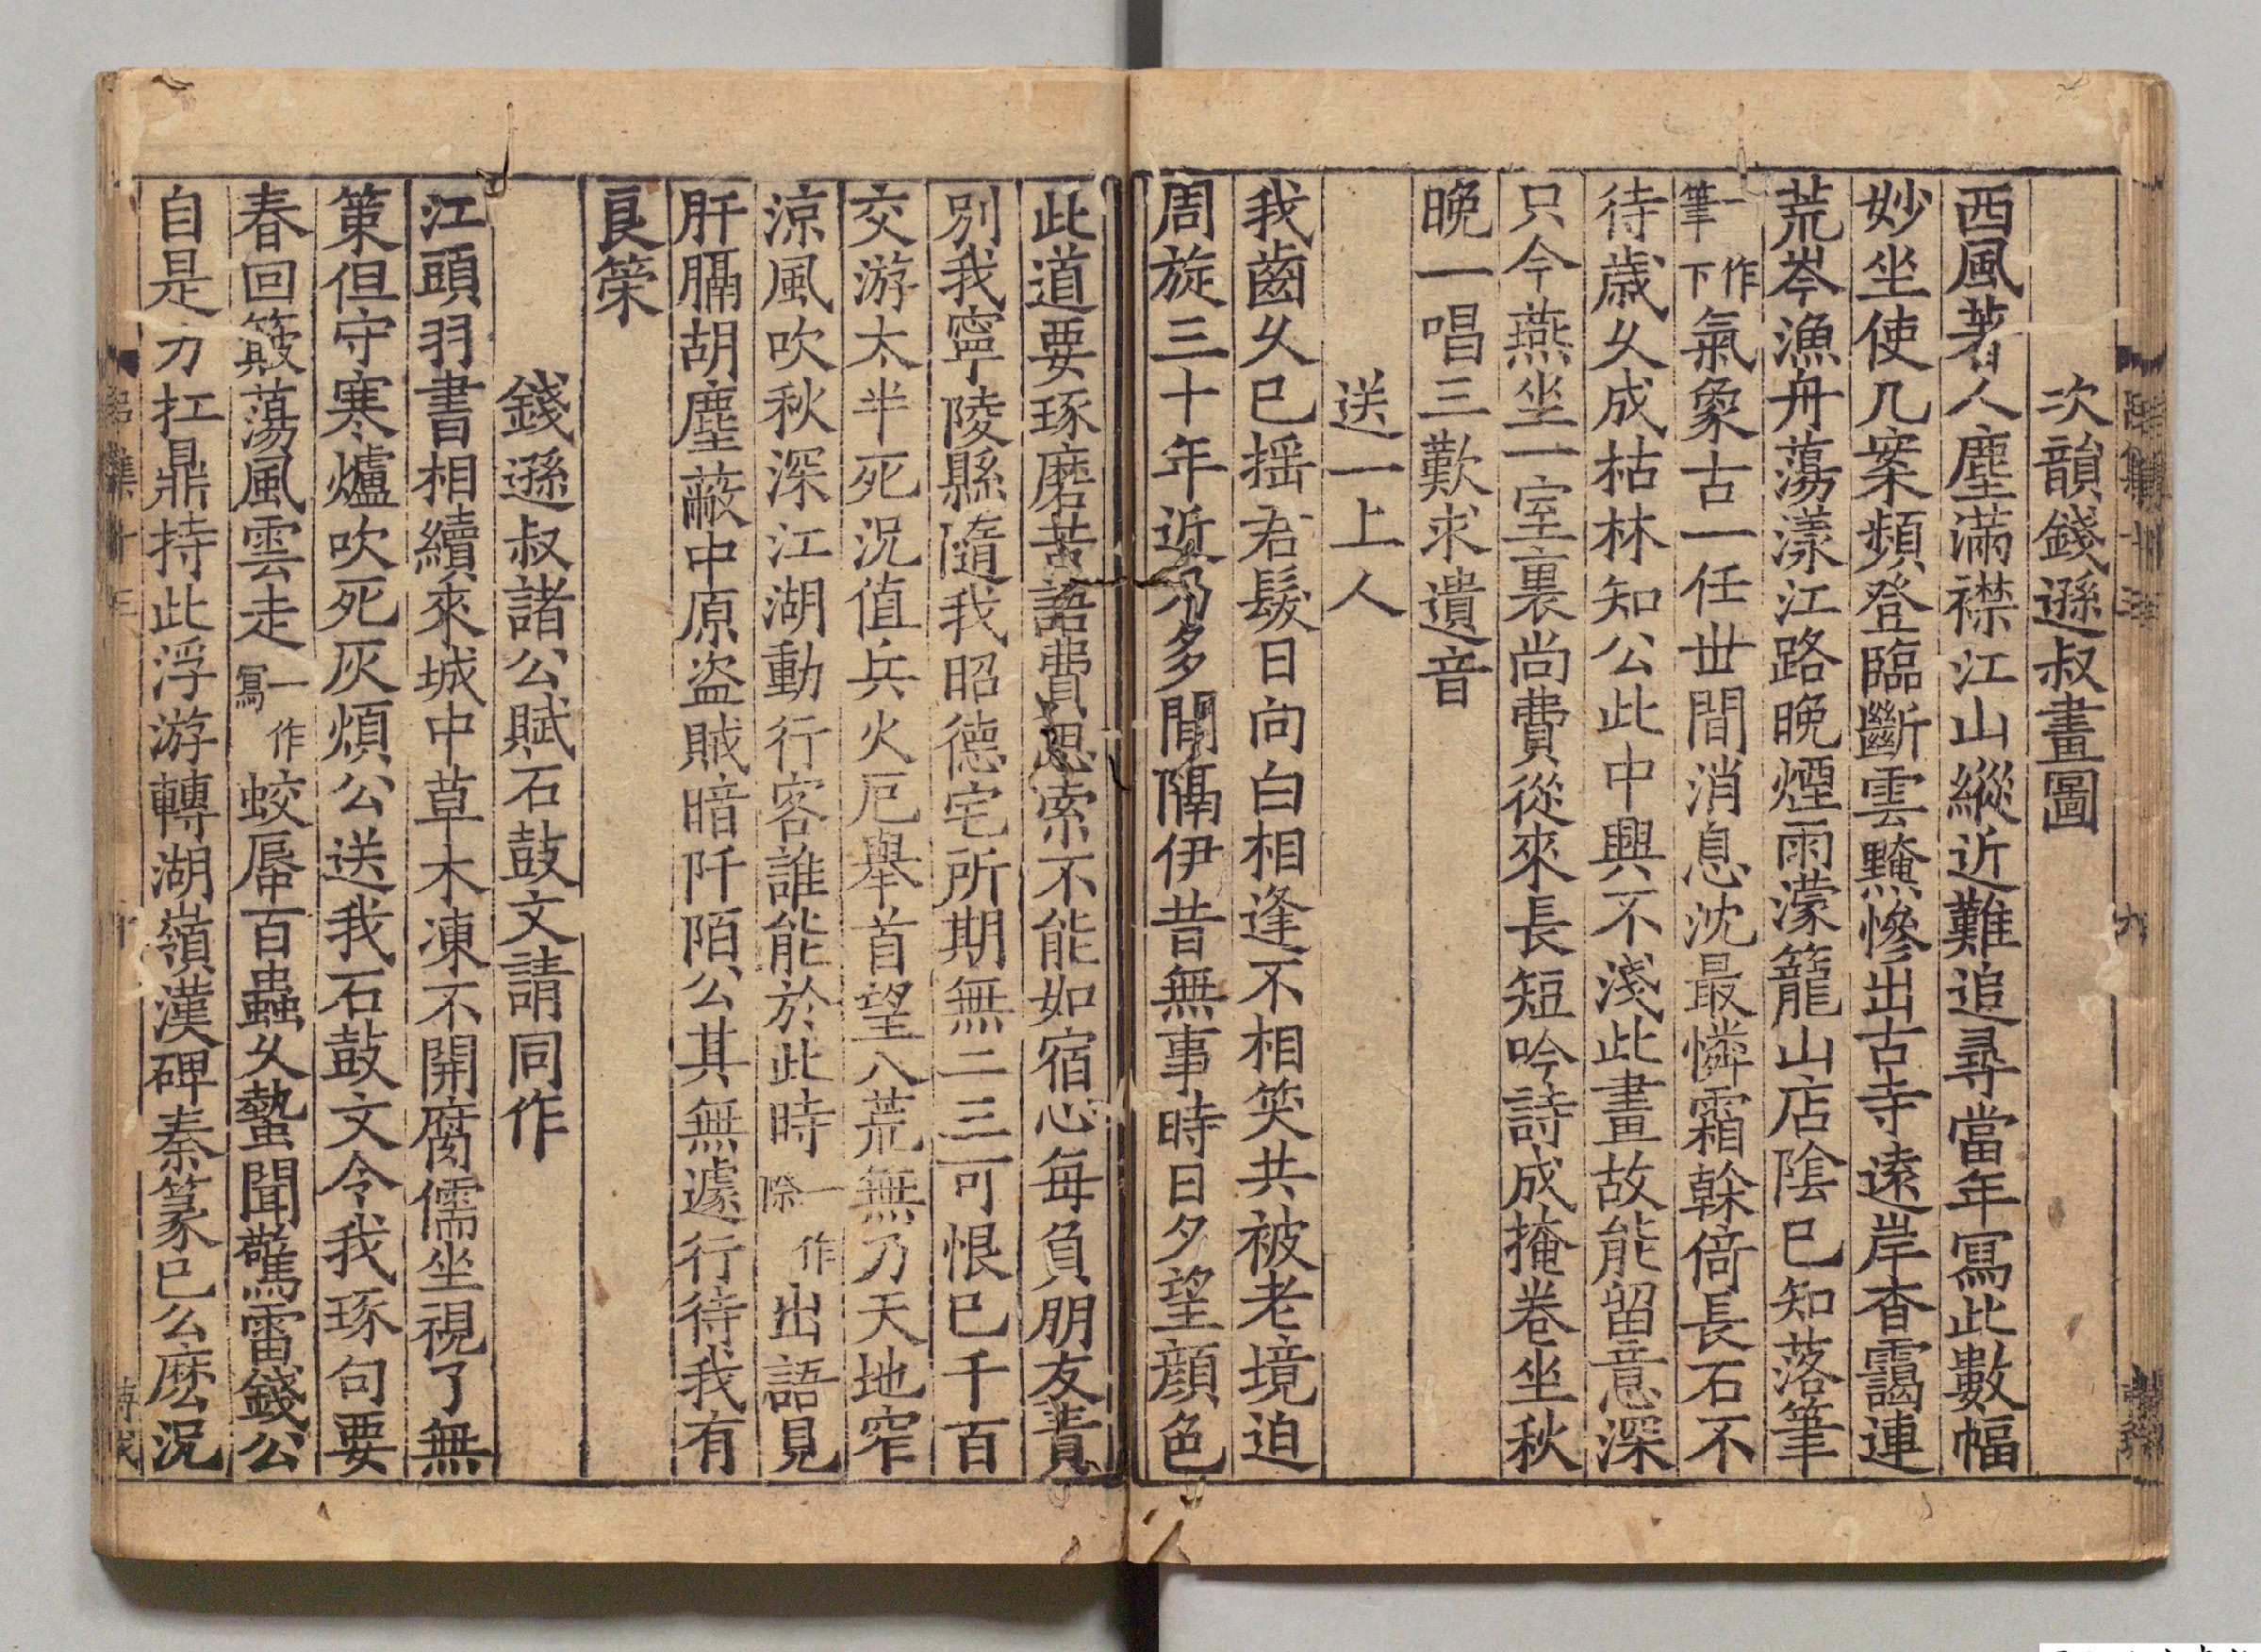 次韻錢遜叔畫圖
西風著人塵滿襟江山縱近難追尋當年冩此數幅
妙坐使几案頻登臨斷雲黤慘出古寺遠岸杳靄連
荒岑漁舟蕩漾江路晚煙雨濛籠山店陰已知落筆
一作筆下氣象古一任世間消息沈最憐霜榦倚長石不
待歲久成枯林知公此中興不淺此畫故能留意深
只今燕坐一室裏尚費從來長短吟詩成掩卷坐秋
晚一唱三歎求遺音
送一上人
我齒久已揺君髮日向白相逢不相笑共被老境迫
周旋三十年近乃多間隔伊昔無事時日夕望顔色
此道要琢磨苦語費思索不能如宿心每負朋友責
別我寧陵縣隨我昭德宅所期無二三可恨已千百
交游太半死況值兵火厄舉首望八荒無乃天地窄
涼風吹秋深江湖動行客誰能於此時一作際出語見
肝膈胡塵蔽中原盗賊暗阡陌公其無遽行待我有
良策
錢遜叔諸公賦石鼓文請同作
江頭羽書相續來城中草木凍不開腐儒坐視了無
策但守寒爐吹死灰煩公送我石鼓文令我琢句要
春回簸蕩風雲走一作冩蛟蜃百蟲久蟄聞驚雷錢公
自是力扛鼎持此浮游轉湖嶺漢碑秦篆已么麽況